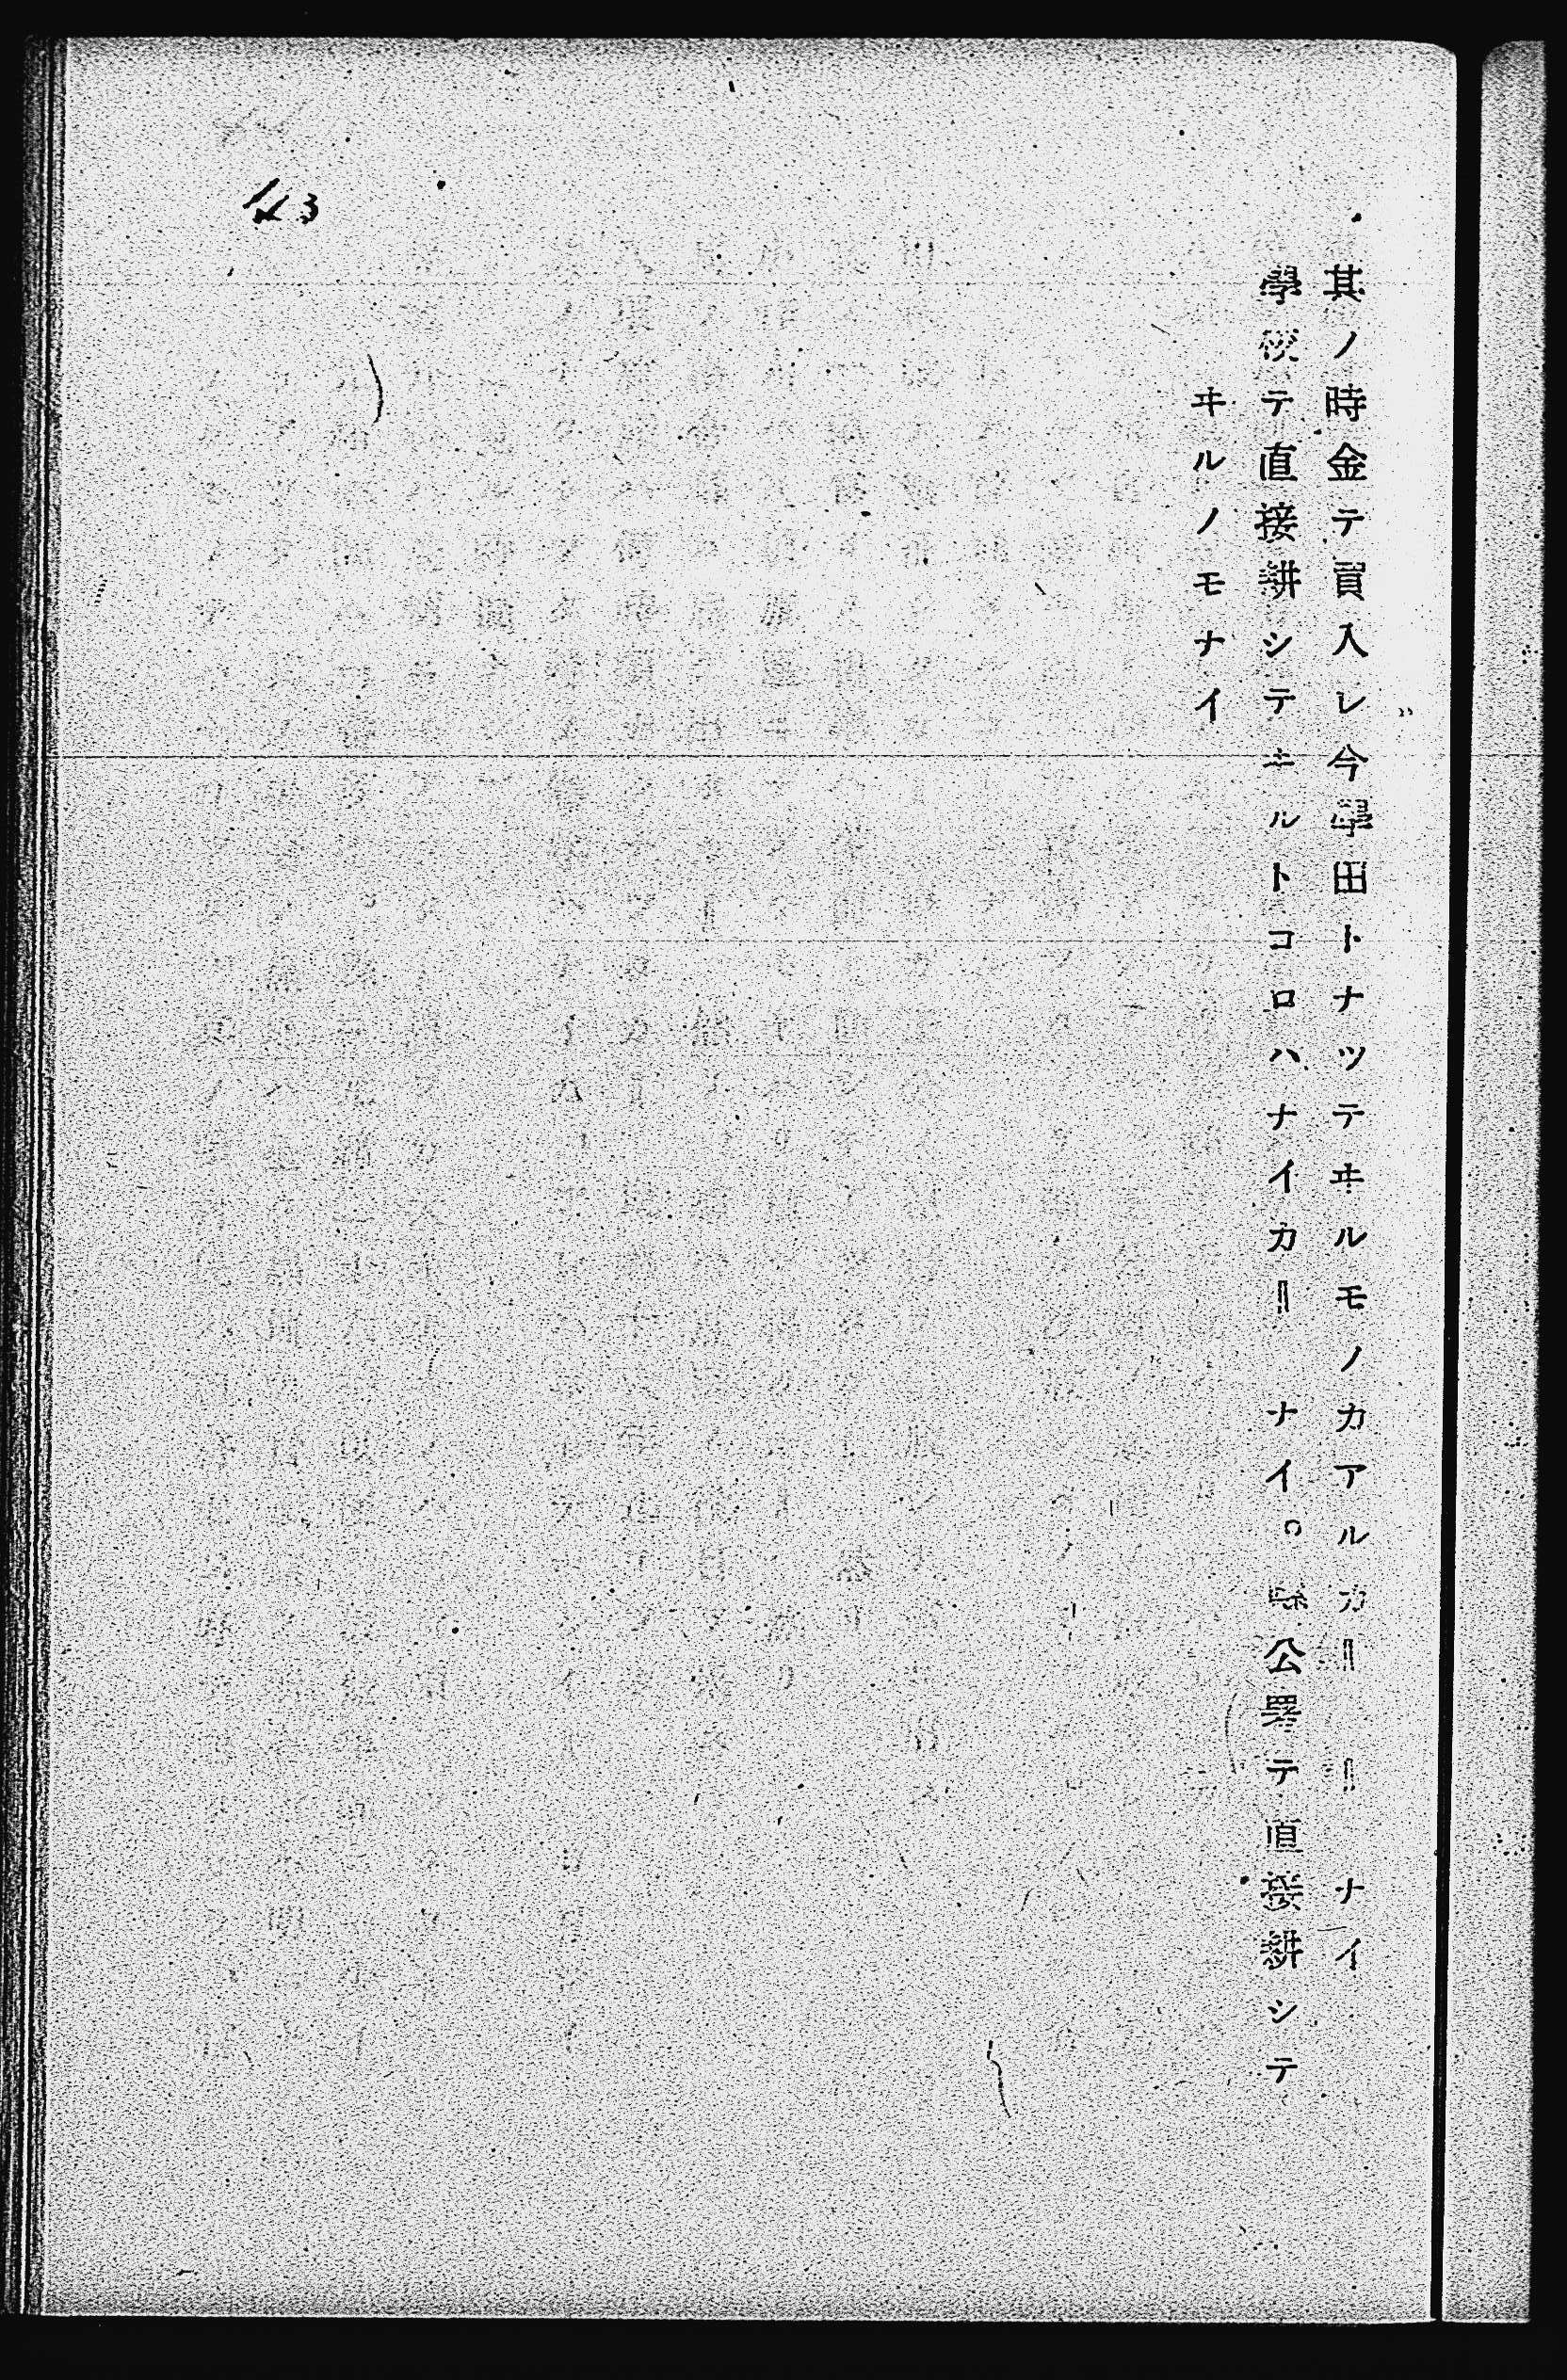 其ノ時金テ買入レ今學田トナツテヰルモノカアルカ‖　‖ナイ
學校テ直接耕シテヰルトコロハナイカ‖　ナイ。縣公署テ直接耕シテ
ヰルノモナイ